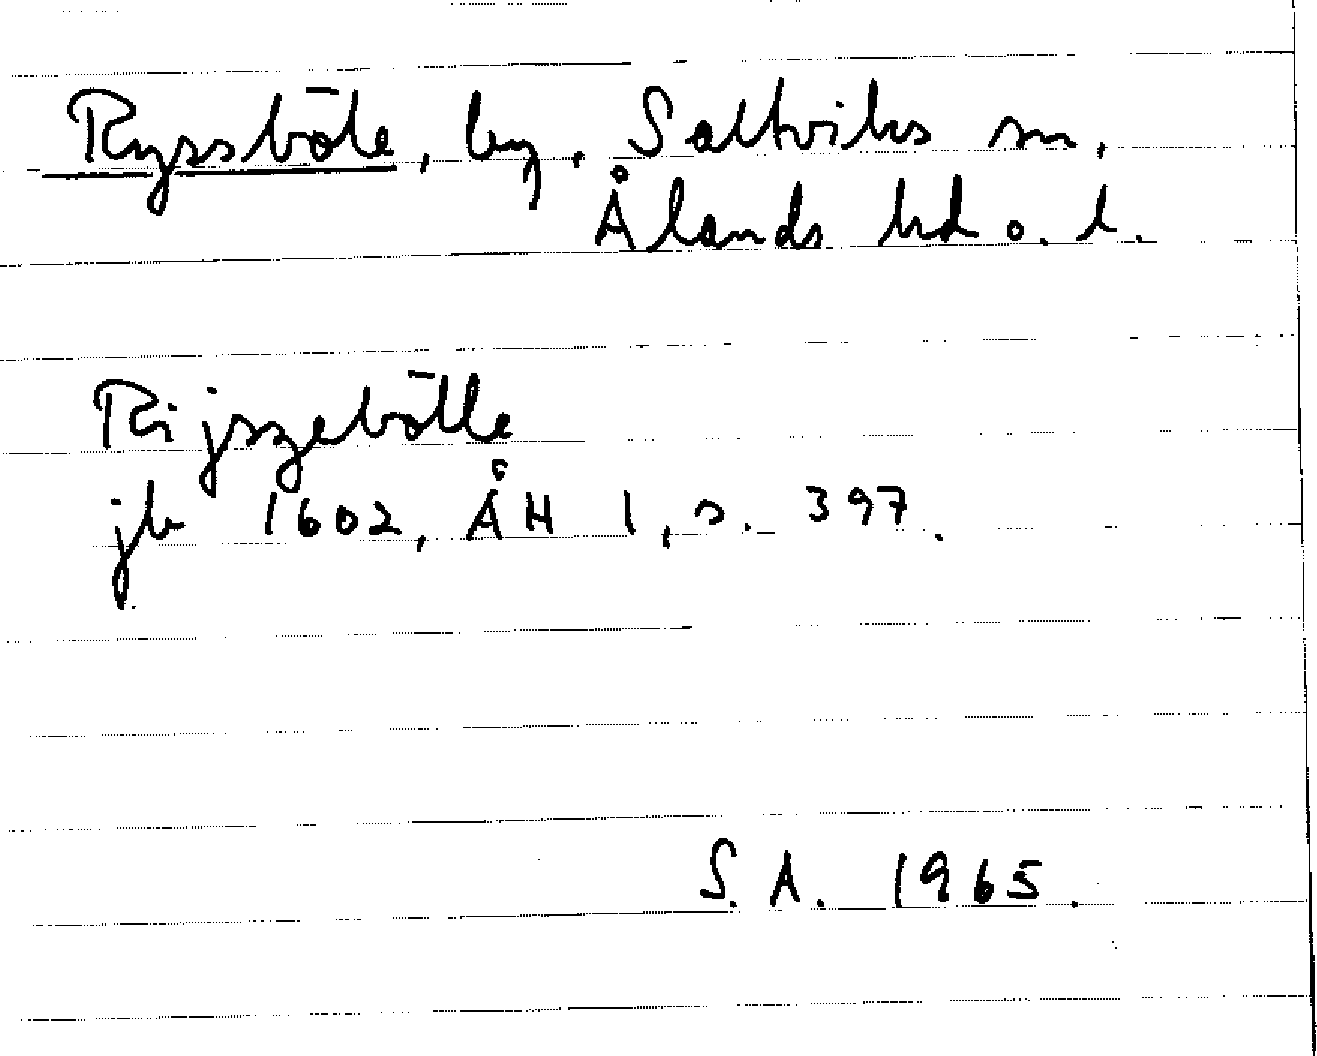 Ryssböle, by, Saltviks sn,
Ålands hd o. l.
Rijszebölle
jb 1602, ÅH 1, s. 397.
S. A. 1965.